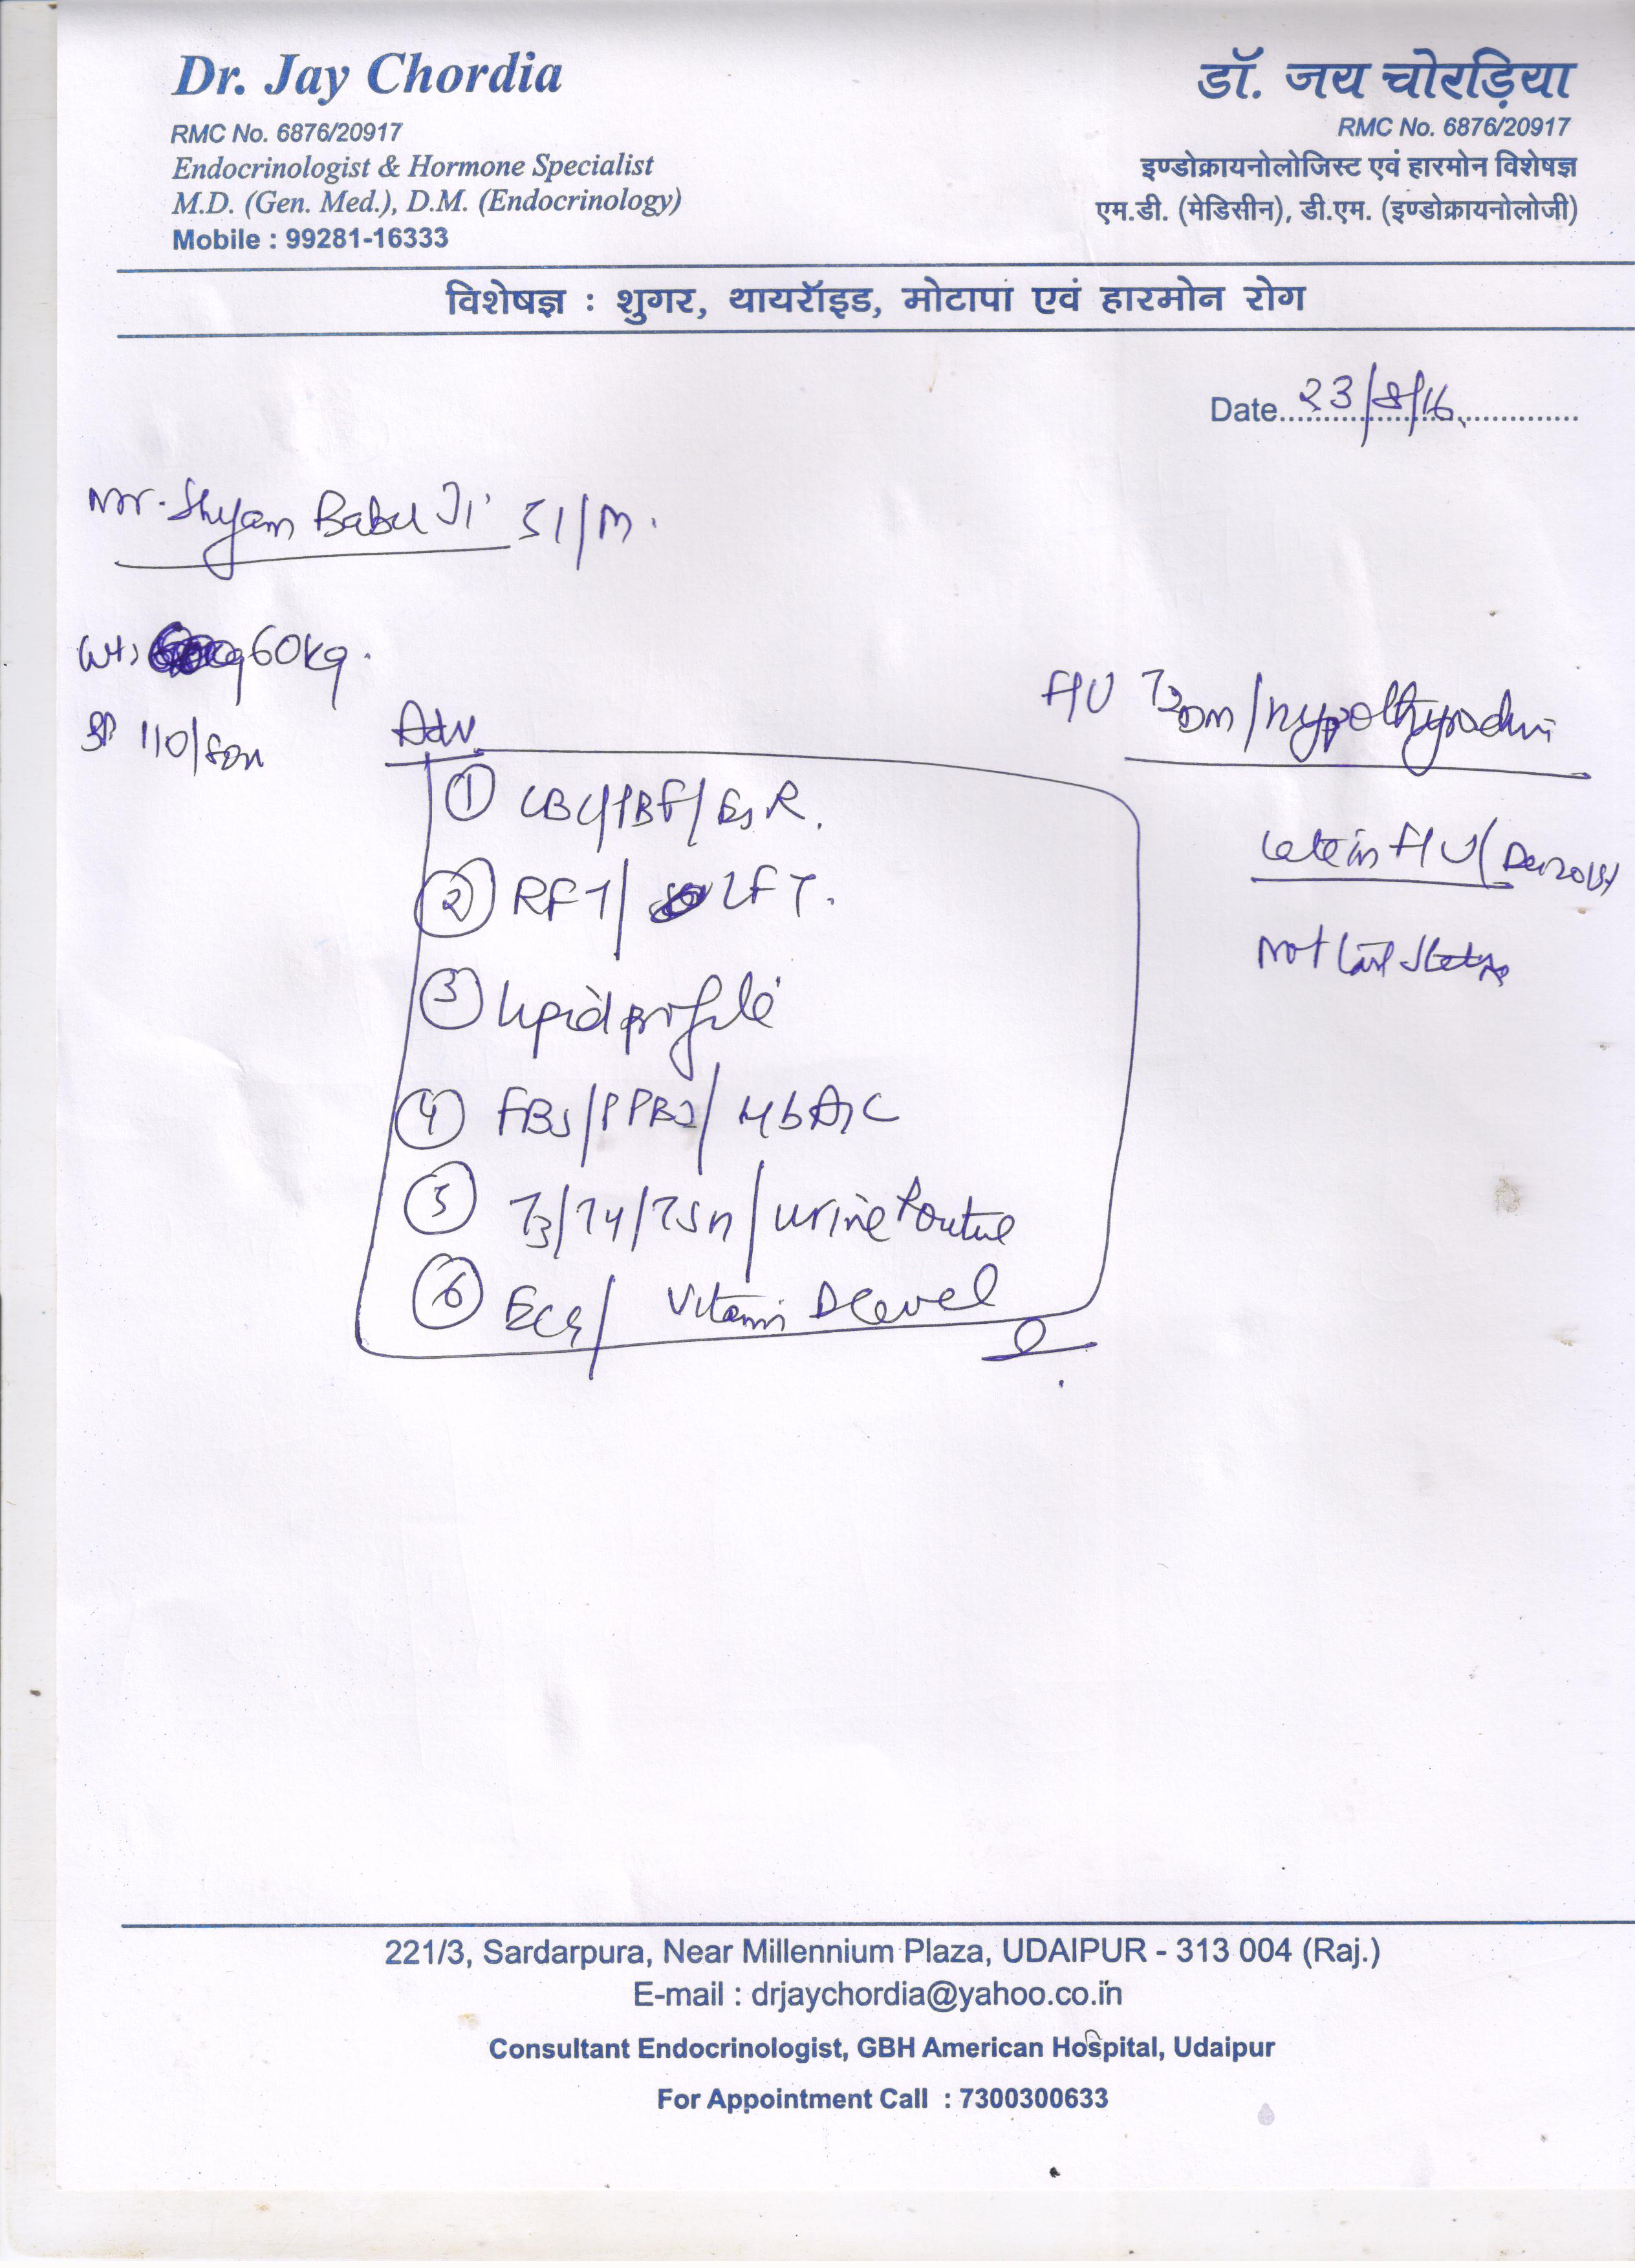 Dr. Jay Chordia
RMC No. 6876/20917
Endocrinologist & Hormone Specialist
M.D. (Gen. Med.), D.M. (Endocrinology)
Mobile : 99281-16333
डॉ. जय चोरड़िया
RMC No. 6876/20917
इण्डोक्रायनोलोजिस्ट एवं हारमोन विशेषज्ञ
एम.डी. (मेडिसीन), डी.एम. (इण्डोक्रायनोलोजी)
विशेषज्ञ : शुगर, थायरॉइड, मोटापा एवं हारमोन रोग
Date 23/8/16
Mr. Shyam Babu Ji 51/M.
Wt 60kg.
BP 110/80
F/U T2DM/hypothyroidism
Late in F/U (Dec 2015)
Not
Adv
① CBC/PBF/ESR.
② RFT/ LFT.
③ Lipid profile
④ FBS/PPBS/HbA1C
⑤ T3/T4/TSH/Urine Routine
⑥ ECG/ Vitamin D level
221/3, Sardarpura, Near Millennium Plaza, UDAIPUR - 313 004 (Raj.)
E-mail : drjaychordia@yahoo.co.in
Consultant Endocrinologist, GBH American Hospital, Udaipur
For Appointment Call : 7300300633